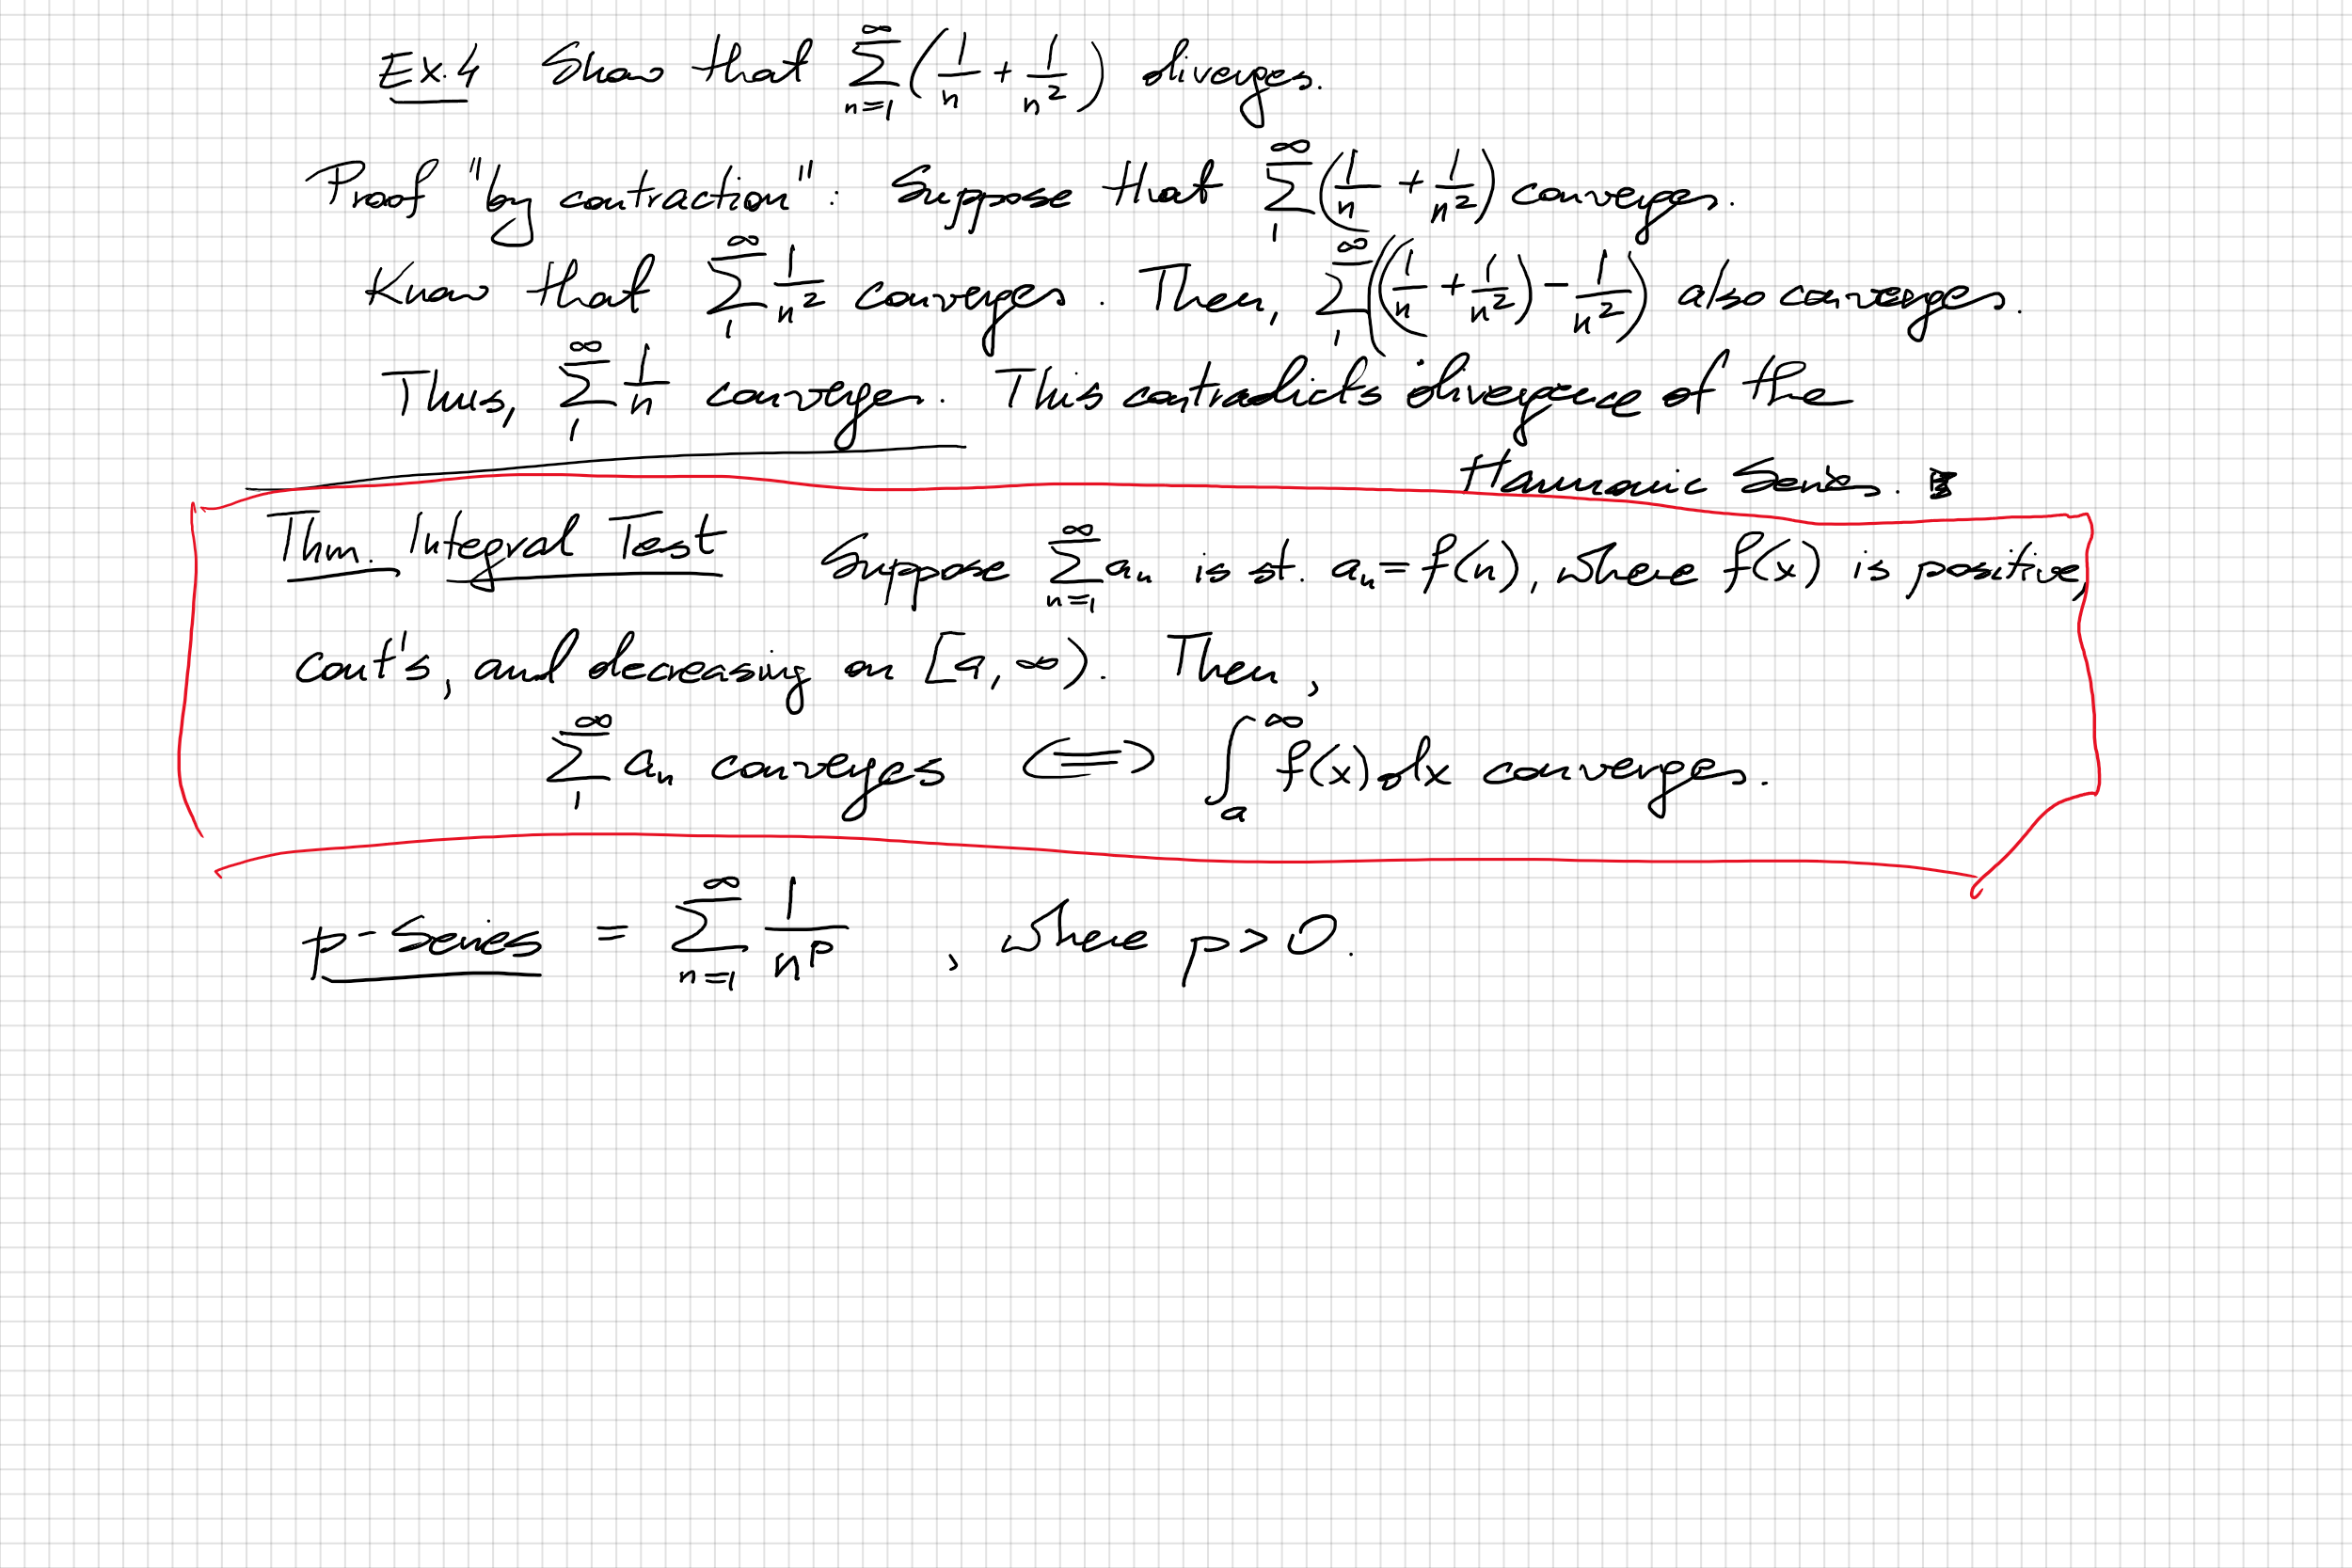 Ex.4 Show that ∑_{n=1}^{∞} (1/n + 1/n²) diverges.
Proof "by contraction": Suppose that ∑_{1}^{∞} (1/n + 1/n²) converges.
Know that ∑_{1}^{∞} 1/n² converges. Then, ∑_{1}^{∞} ((1/n + 1/n²) − 1/n²) also converges.
Thus, ∑_{1}^{∞} 1/n converges. This contradicts divergence of the
Harmonic Series.
Thm. Integral Test Suppose ∑_{n=1}^{∞} aₙ is st. aₙ = f(n), where f(x) is positive,
cont's, and decreasing on [a, ∞). Then,
∑_{1}^{∞} aₙ converges ⟺ ∫_{a}^{∞} f(x) dx converges.
p-Series = ∑_{n=1}^{∞} 1/n^p , where p > 0.